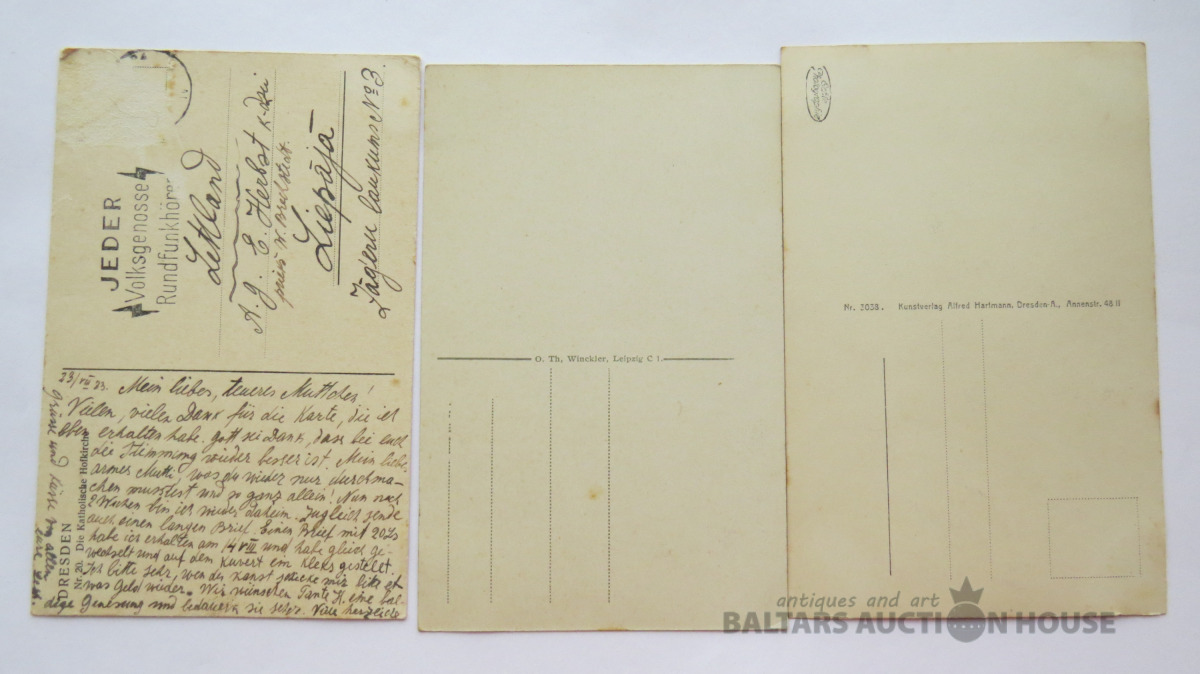 JEDER
Volksgenosse
Rundfunkhörer
Lettland
A. g. E. Herbst k-dzei
Liepājā
Jāgeru laukums No 3.
23/VIII 33. Mein liebes, teueres Muttchen!
Vielen, vielen Dank für die Karte, die ich
eben erhalten habe. Gott sei Dank, dass bei euch
die Stimmung wieder besser ist. Mein liebe
armes Mutti, was du wieder nur durchma-
chen musstest und so ganz allein! Nun nach
2 Wochen bin ich wieder daheim. Zugleich sende
auch einen langen Brief. Einen Brief mit 20 Ls
habe ich erhalten am 14/VIII und habe gleich ge-
wechselt und auf dem Kuwert ein Kleks gestellt.
Ich bitte sehr, wen du kanst schicke mir bitte et
was Geld wieder. Wir wünschen Tante K. eine bal-
dige Genesung und bedauern sie sehr. Viele herzliche
Grüsse und Küsse von allen
DRESDEN
Nr. 20. Die Katholische Hofkirche
O. Th. Winckler, Leipzig C 1.
Nr. 3038. Kunstverlag Alfred Hartmann, Dresden-A., Annenstr. 48 II
antiques and art
BALTARS AUCTION HOUSE